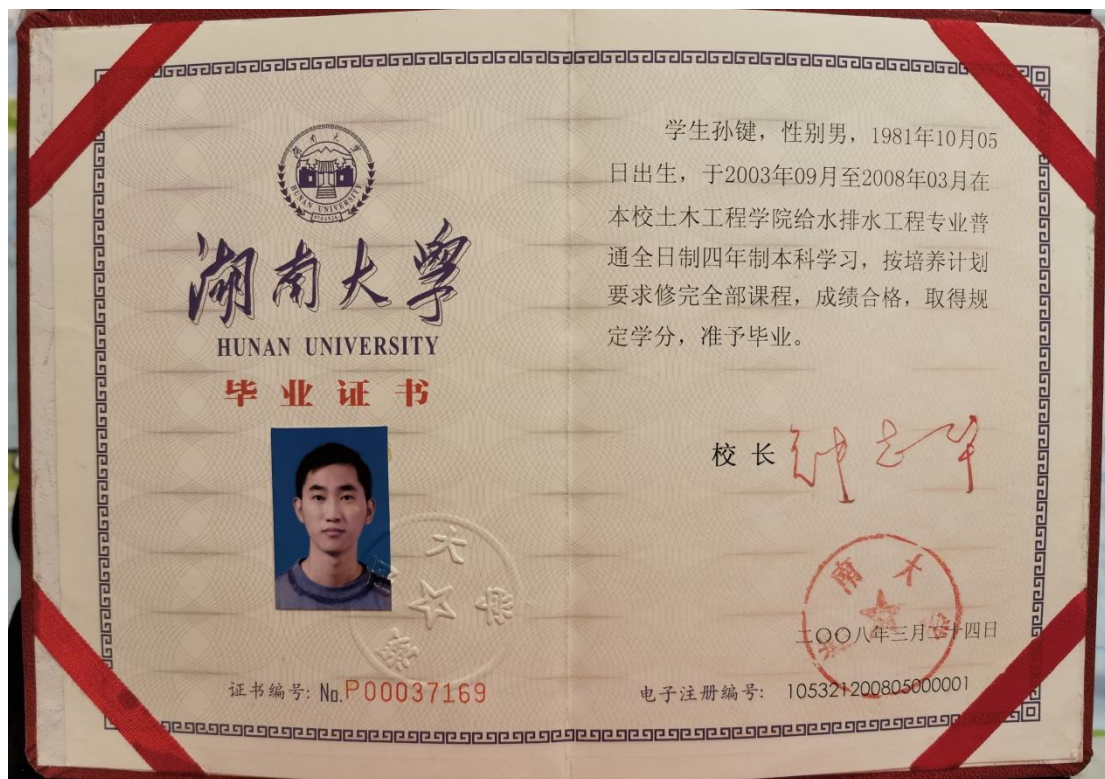 湖南大学
HUNAN UNIVERSITY
湖南大学
HUNAN UNIVERSITY
毕业证书
大
学
证书编号: No.P00037169
学生孙键，性别男，1981年10月05
日出生，于2003年09月至2008年03月在
本校土木工程学院给水排水工程专业普
通全日制四年制本科学习，按培养计划
要求修完全部课程，成绩合格，取得规
定学分，准予毕业。
校长 钟志华
湖南大学
二〇〇八年三月二十四日
电子注册编号: 105321200805000001